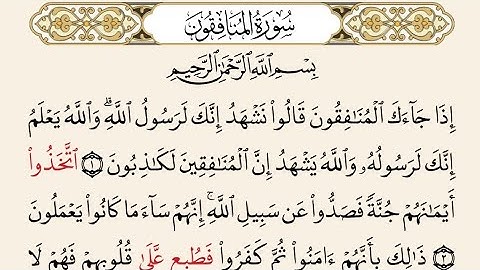 سُورَةُ المُنَافِقُونَ
بِسْمِ ٱللَّهِ ٱلرَّحْمَٰنِ ٱلرَّحِيمِ
إِذَا جَآءَكَ ٱلْمُنَٰفِقُونَ قَالُوا۟ نَشْهَدُ إِنَّكَ لَرَسُولُ ٱللَّهِ ۗ وَٱللَّهُ يَعْلَمُ
إِنَّكَ لَرَسُولُهُۥ وَٱللَّهُ يَشْهَدُ إِنَّ ٱلْمُنَٰفِقِينَ لَكَٰذِبُونَ ١ ٱتَّخَذُوٓا۟
أَيْمَٰنَهُمْ جُنَّةً فَصَدُّوا۟ عَن سَبِيلِ ٱللَّهِ ۚ إِنَّهُمْ سَآءَ مَا كَانُوا۟ يَعْمَلُونَ
٢ ذَٰلِكَ بِأَنَّهُمْ ءَامَنُوا۟ ثُمَّ كَفَرُوا۟ فَطُبِعَ عَلَىٰ قُلُوبِهِمْ فَهُمْ لَا